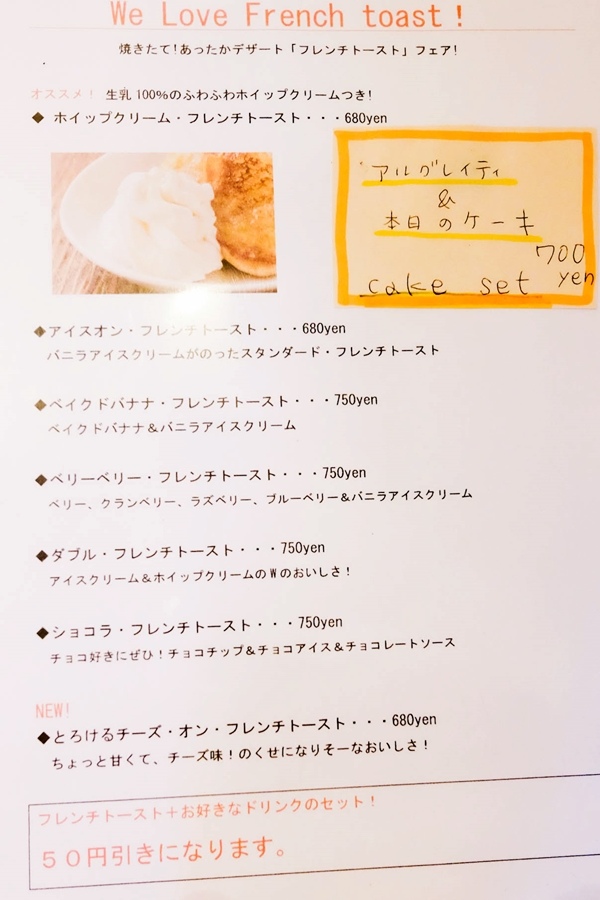 We Love French toast！
焼きたて!あったかデザート「フレンチトースト」フェア!
オススメ！ 生乳100%のふわふわホイップクリームつき!
◆ ホイップクリーム・フレンチトースト・・・680yen
アルグレイティ
&
本日のケーキ
700 yen
cake set
◆アイスオン・フレンチトースト・・・680yen
バニラアイスクリームがのったスタンダード・フレンチトースト
◆ベイクドバナナ・フレンチトースト・・・750yen
ベイクドバナナ＆バニラアイスクリーム
◆ベリーベリー・フレンチトースト・・・750yen
ベリー、クランベリー、ラズベリー、ブルーベリー＆バニラアイスクリーム
◆ダブル・フレンチトースト・・・750yen
アイスクリーム＆ホイップクリームのWのおいしさ！
◆ショコラ・フレンチトースト・・・750yen
チョコ好きにぜひ！チョコチップ＆チョコアイス＆チョコレートソース
NEW!
◆とろけるチーズ・オン・フレンチトースト・・・680yen
ちょっと甘くて、チーズ味！のくせになりそーなおいしさ！
フレンチトースト＋お好きなドリンクのセット！
５０円引きになります。